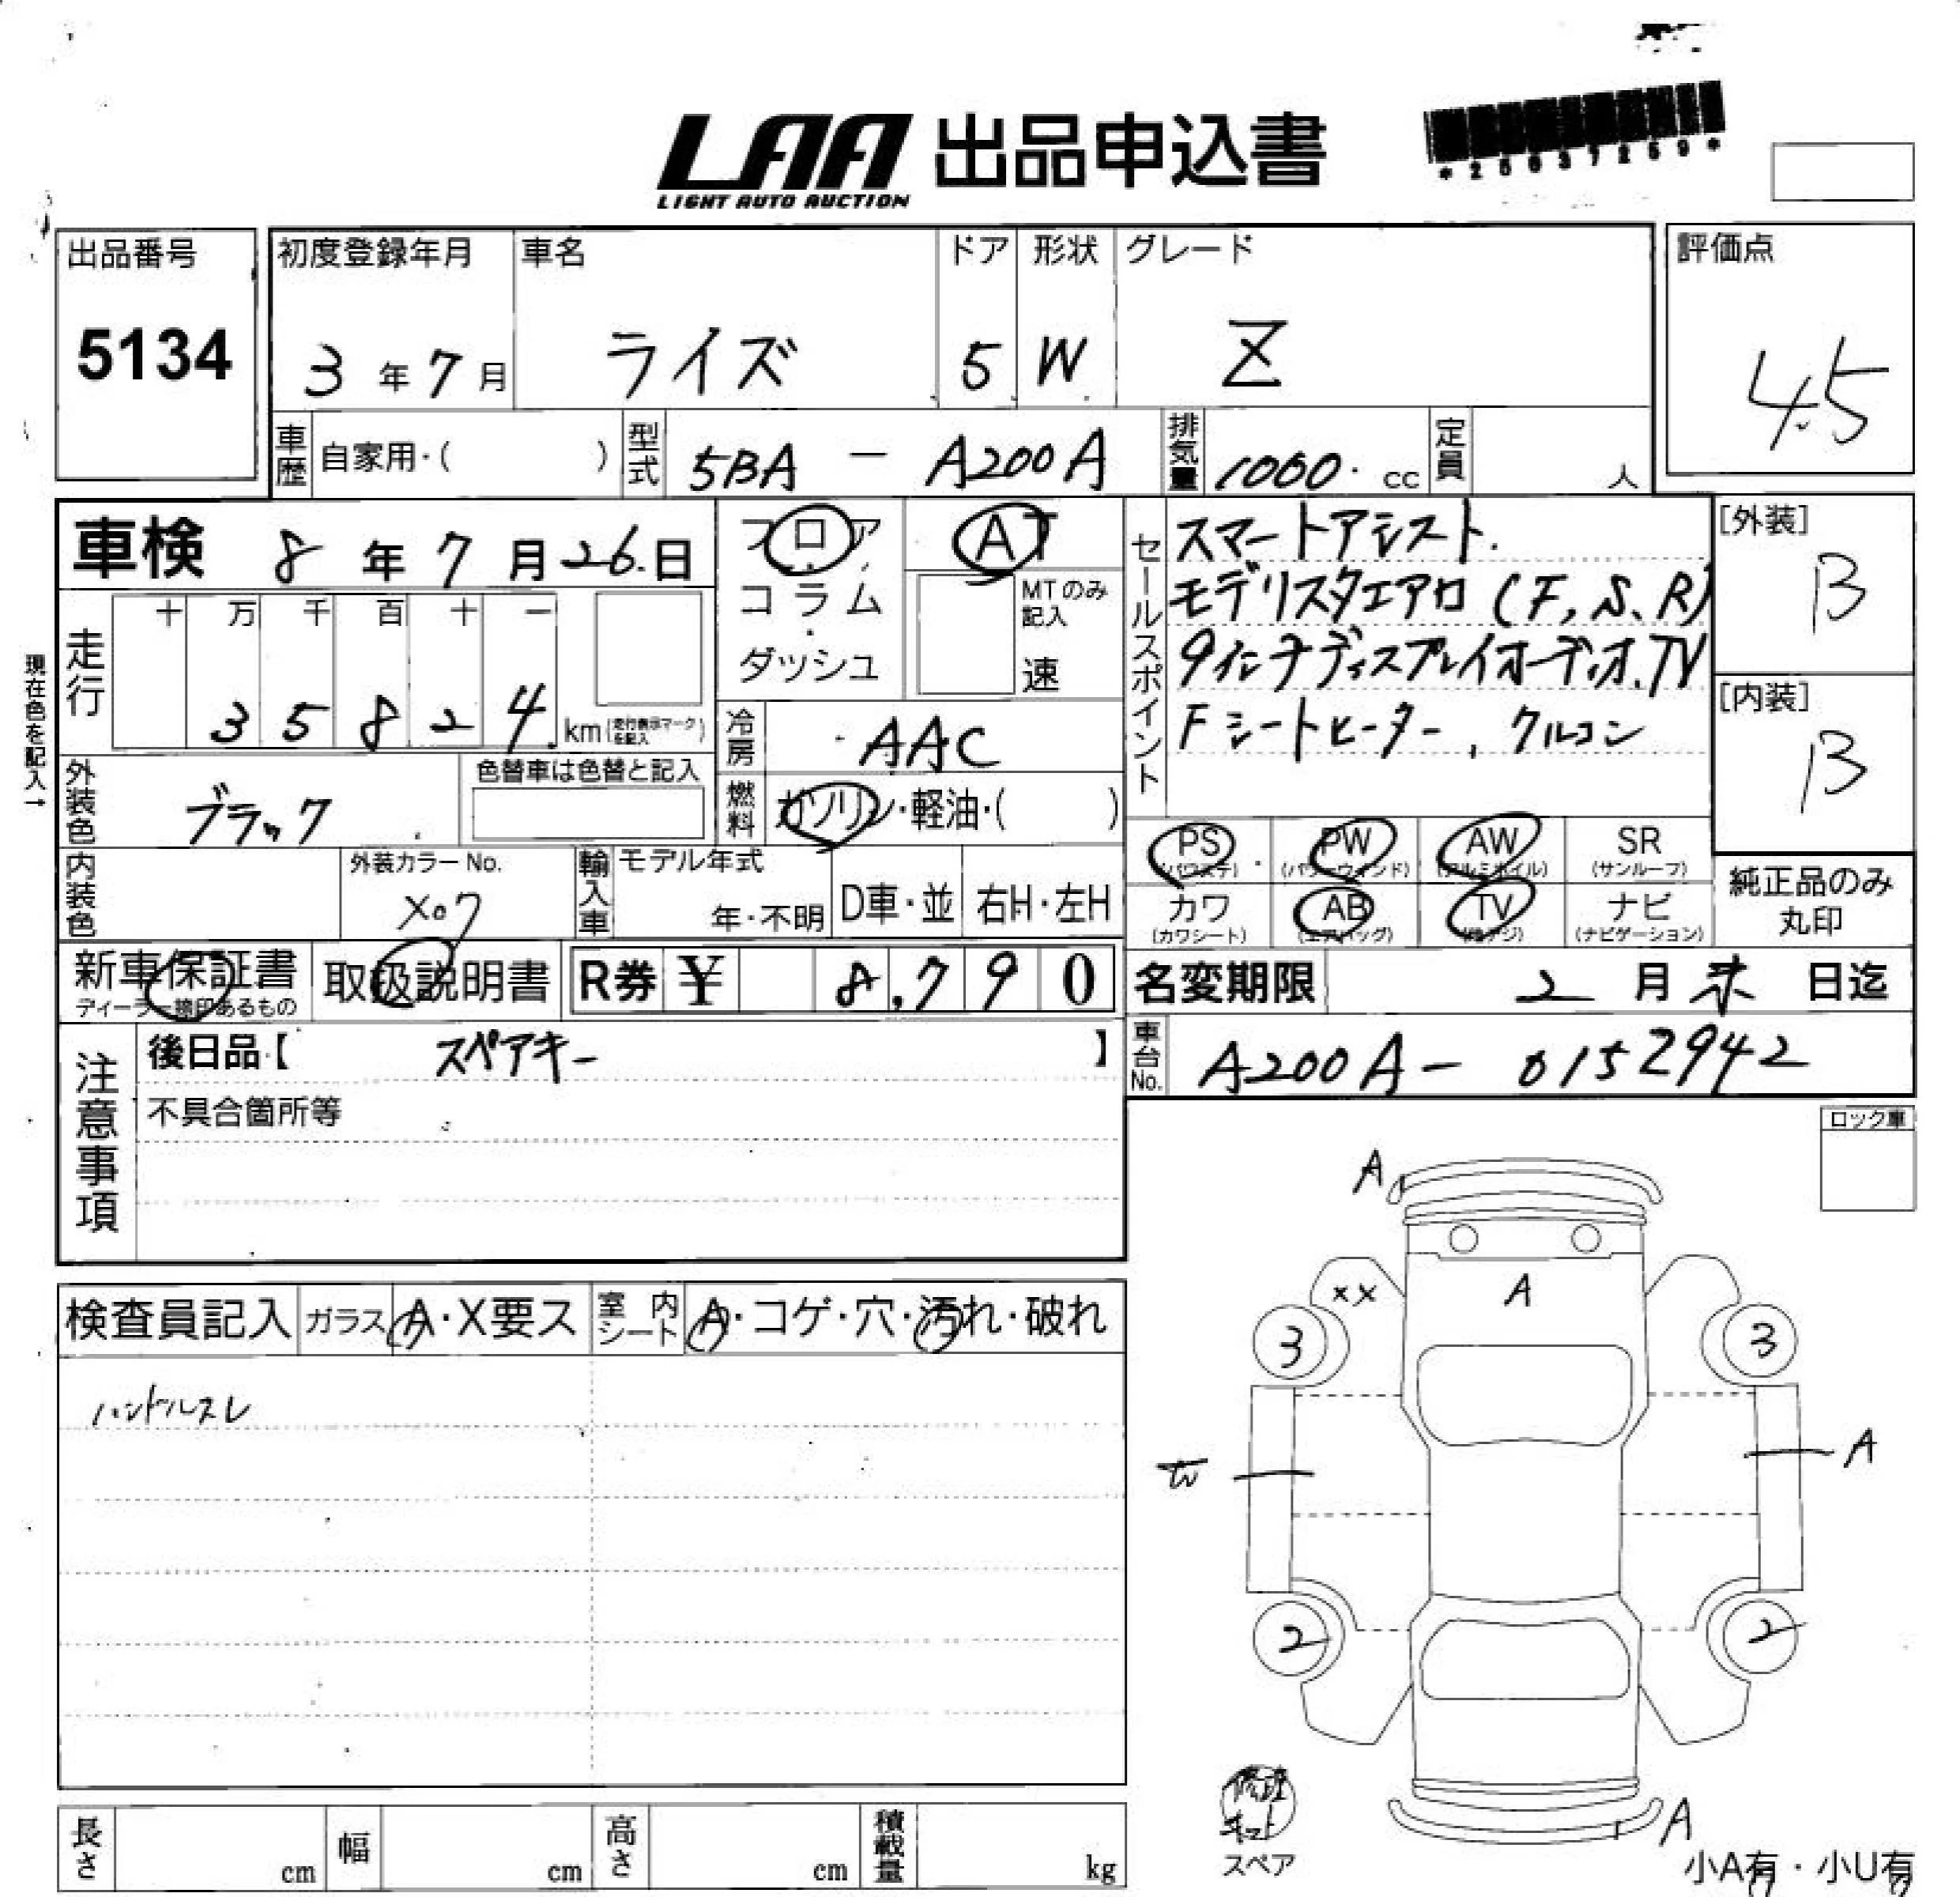 LAA 出品申込書
LIGHT AUTO AUCTION
*25037259*
出品番号
5134
初度登録年月
3年7月
車名
ライズ
ドア
5
形状
W
グレード
Z
評価点
4.5
車歴 自家用・( )
型式 5BA - A200A
排気量 1000. cc
定員 人
車検 8年7月26日
フロア・コラム・ダッシュ
AT
MTのみ記入
速
セールスポイント
スマートアシスト.
モデリスタエアロ (F, S, R)
9インチディスプレイオーディオ.TV
Fシートヒーター, クルコン
[外装]
B
[内装]
B
現在色を記入→
走行
十 万 千 百 十 一
3 5 8 2 4 km(走行表示マークを記入)
冷房 AAC
燃料 ガソリン・軽油・( )
外装色 ブラック
色替車は色替と記入
内装色
外装カラーNo.
X07
輸入車
モデル年式
年・不明
D車・並
右H・左H
PS (パワステ)
PW (パワーウィンド)
AW (アルミホイル)
SR (サンルーフ)
カワ (カワシート)
AB (エアバッグ)
TV (地デジ)
ナビ (ナビゲーション)
純正品のみ丸印
新車保証書
ディーラー捺印あるもの
取扱説明書
R券 ¥ 8,790
名変期限 2月末日迄
車台No. A200A- 0152942
注意事項
後日品【 スペアキー 】
不具合箇所等
ロック車
検査員記入
ガラス A・X要ス
室内シート A・コゲ・穴・汚れ・破れ
ハンドルスレ
A
XX
A
3
3
A
2
2
修理キット
スペア
A
小A有・小U有
長さ cm
幅 cm
高さ cm
積載量 kg